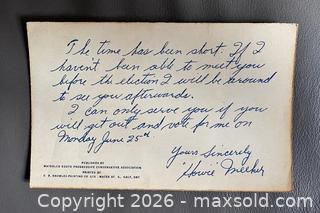 The time has been short. If I
haven't been able to meet you
before the election I will be around
to see you afterwards.
I can only serve you if you
will get out and vote for me on
Monday June 25th
Yours Sincerely
'Howie' Meeker
PUBLISHED BY
WATERLOO SOUTH PROGRESSIVE CONSERVATIVE ASSOCIATION.
PRINTED BY
WATER ST. S., GALT, ONT.
Copyright 2026 - maxsold.com